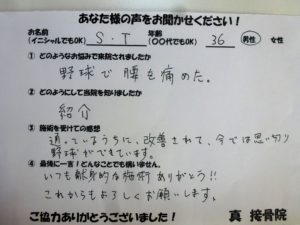 あなた様の声をお聞かせください！
お名前 (イニシャルでもOK) S・T 年齢 (〇〇代でもOK) 36 男性 女性
① どのようなお悩みで来院されましたか
野球で腰を痛めた。
② どのようにして当院を知りましたか
紹介
③ 施術を受けての感想
通っているうちに、改善されて、今では思い切り
野球ができています。
④ 最後に一言！どんなことでも構いません。
いつも献身的な施術ありがとう!!
これからもよろしくお願いします。
ご協力ありがとうございました！ 真 接骨院